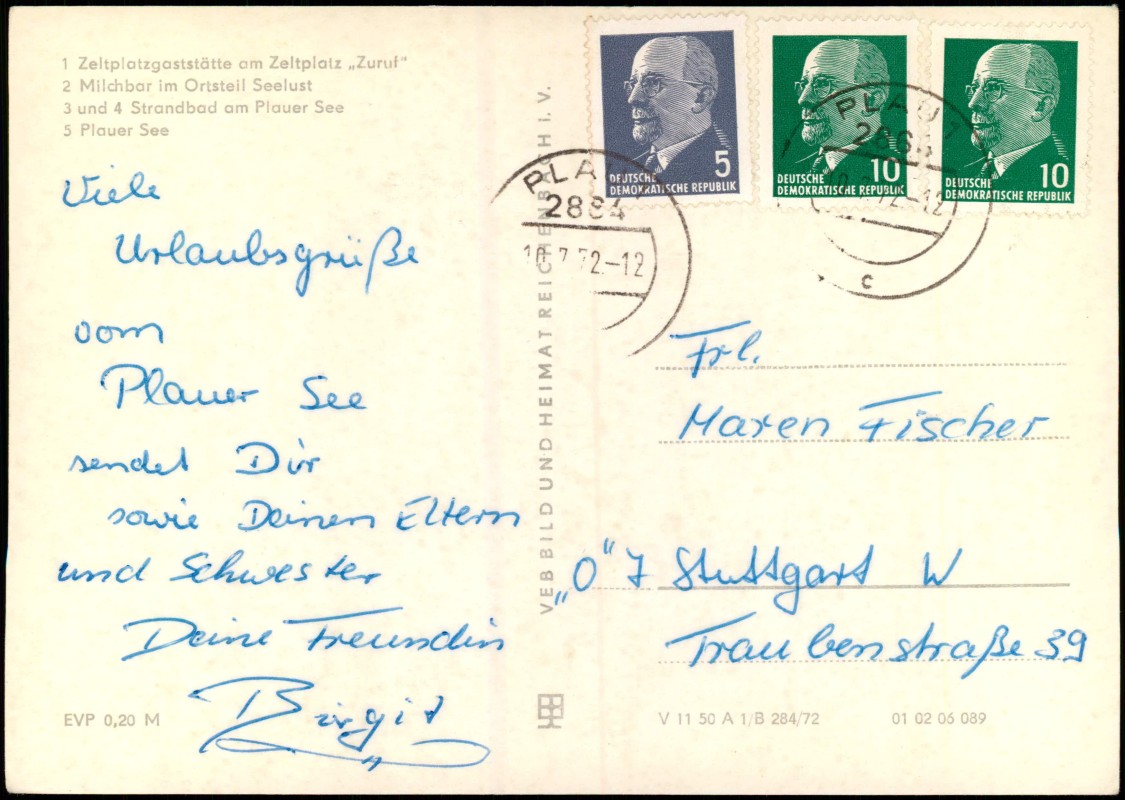 1 Zeltplatzgaststätte am Zeltplatz „Zuruf“
2 Milchbar im Ortsteil Seelust
3 und 4 Strandbad am Plauer See
5 Plauer See
Viele
Urlaubsgrüße
vom
Plauer See
sendet Dir
sowie Deinen Eltern
und Schwester
Deine Freundin
Birgit
EVP 0,20 M
VEB BILD UND HEIMAT REICHENBACH I. V.
5
DEUTSCHE
DEMOKRATISCHE REPUBLIK
10
DEUTSCHE
DEMOKRATISCHE REPUBLIK
10
DEUTSCHE
DEMOKRATISCHE REPUBLIK
2864
10.7.72.-12
PLAU 1
2864
72-12
c
Frl.
Maren Fischer
„O“ 7 Stuttgart W
Traubenstraße 39
V 11 50 A 1/B 284/72
01 02 06 089